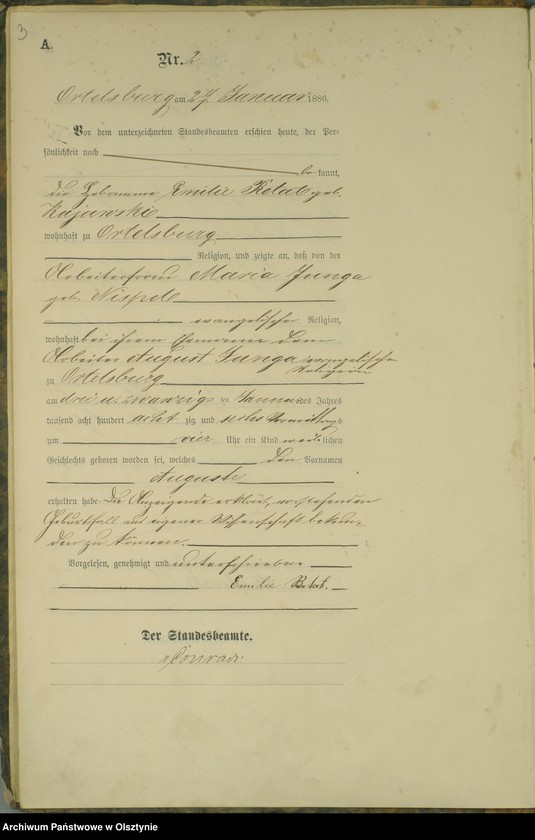 3
A.
Nr. 2
Ortelsburg am 27 Januar 1886.
Vor dem unterzeichneten Standesbeamten erschien heute, der Per-
sönlichkeit nach
be kannt,
die Hebamme Emilie geb.
Kujewski
wohnhaft zu Ortelsburg
Religion, und zeigte an, daß von der
Arbeiterfrau Maria Junga
geb. Nispel
evangelischer Religion,
wohnhaft bei ihrem Ehemanne dem
Arbeiter August Junga evangelischer
Religion
zu Ortelsburg
am drei u. zwanzig ten Januar des Jahres
tausend acht hundert acht zig und sechs Vormittags
um vier Uhr ein Kind weib lichen
Geschlechts geboren worden sei, welches den Vornamen
Auguste
erhalten habe. Die Anzeigende erklärt, vorstehenden
Geburtsfall aus eigener Wissenschaft bekun-
den zu können.
Vorgelesen, genehmigt und unterschrieben
Emilie
Der Standesbeamte.
Conradi
Archiwum Państwowe w Olsztynie